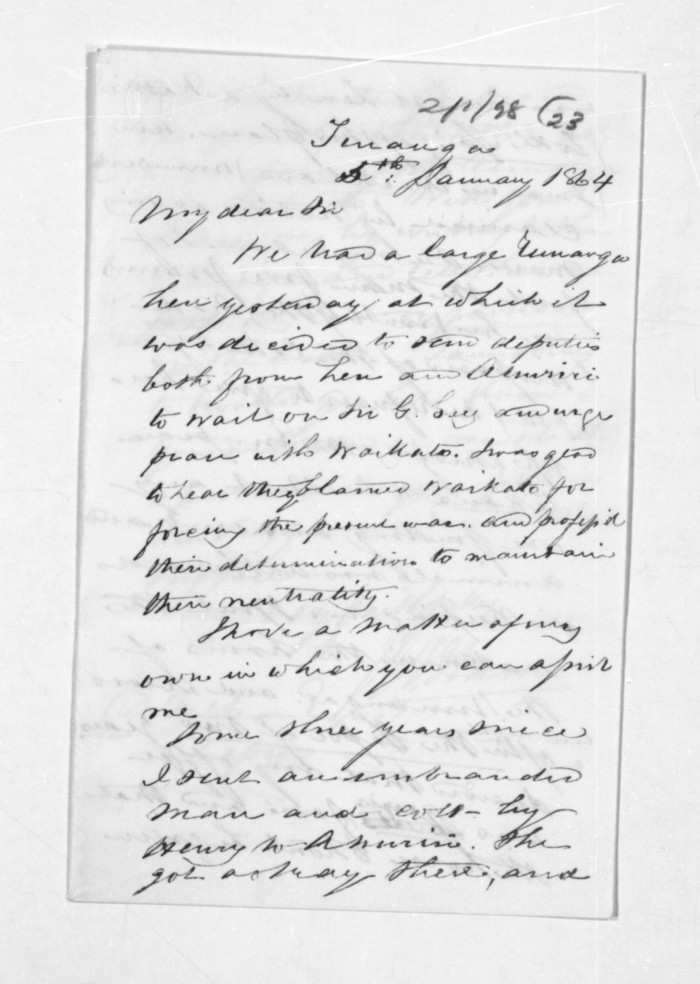 2/1/98 (23
Turanga
5th: January 1864
My dear Sir
We had a large Runanga
here yesterday, at which it
was decided to send deputies
both from here and Ahuriri
to wait on Sir G. Grey and urge
peace with Waikato. I was glad
to hear they blamed Waikato for
forcing the present war. and profess'd
their determination to maintain
their neutrality.
I have a matter of my
own in which you can assist
me
Some three years since
I sent an unbranded
mare and colt by
Henry to Ahuriri. She
got astray there, and